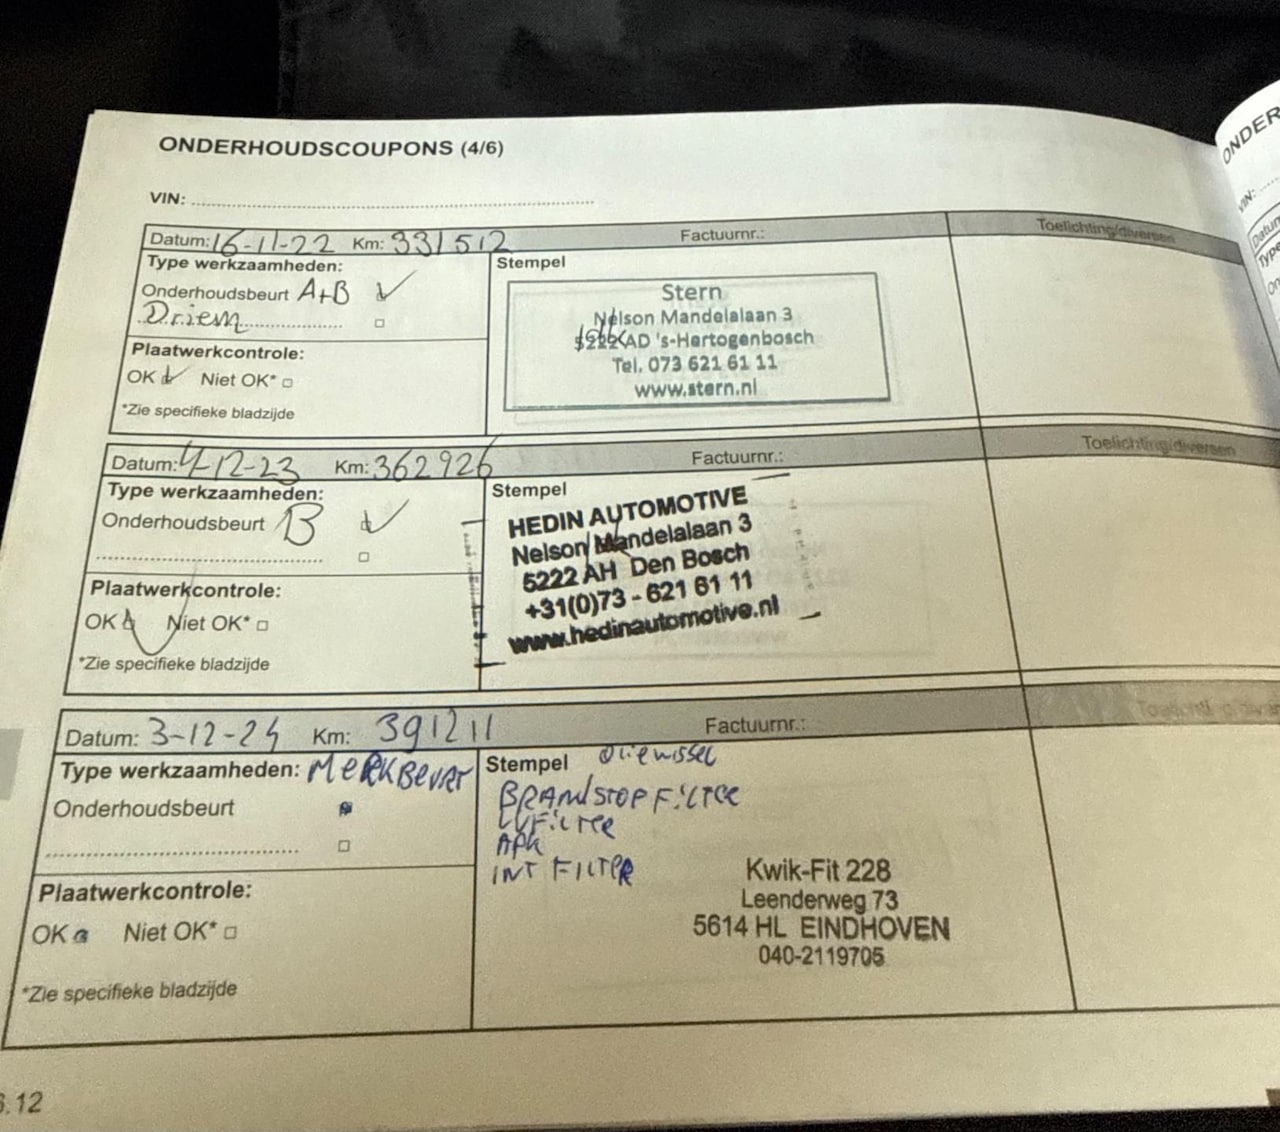 ONDERHOUDSCOUPONS (4/6)
VIN:
Datum: 16-11-22 Km: 331512 Factuurnr.: Toelichting/diversen
Type werkzaamheden:
Onderhoudsbeurt A+B
Driem
Plaatwerkcontrole:
OK Niet OK*
*Zie specifieke bladzijde
Stempel
Stern
Nelson Mandelalaan 3
AD 's-Hertogenbosch
Tel. 073 621 61 11
www.stern.nl
Datum: 4-12-23 Km: 362926 Factuurnr.: Toelichting/diversen
Type werkzaamheden:
Onderhoudsbeurt B
Plaatwerkcontrole:
OK Niet OK*
*Zie specifieke bladzijde
Stempel
HEDIN AUTOMOTIVE
Nelson Mandelalaan 3
5222 AH Den Bosch
+31(0)73 - 621 61 11
www.hedinautomotive.nl
Datum: 3-12-24 Km: 391211 Factuurnr.:
Type werkzaamheden: MERKBEURT
Onderhoudsbeurt
Plaatwerkcontrole:
OK Niet OK*
*Zie specifieke bladzijde
Stempel oliewissel
BRANDSTOFFILTER
APK
INT FILTER
Kwik-Fit 228
Leenderweg 73
5614 HL EINDHOVEN
040-2119705
6.12
ONDER
VIN:
Datum
Type